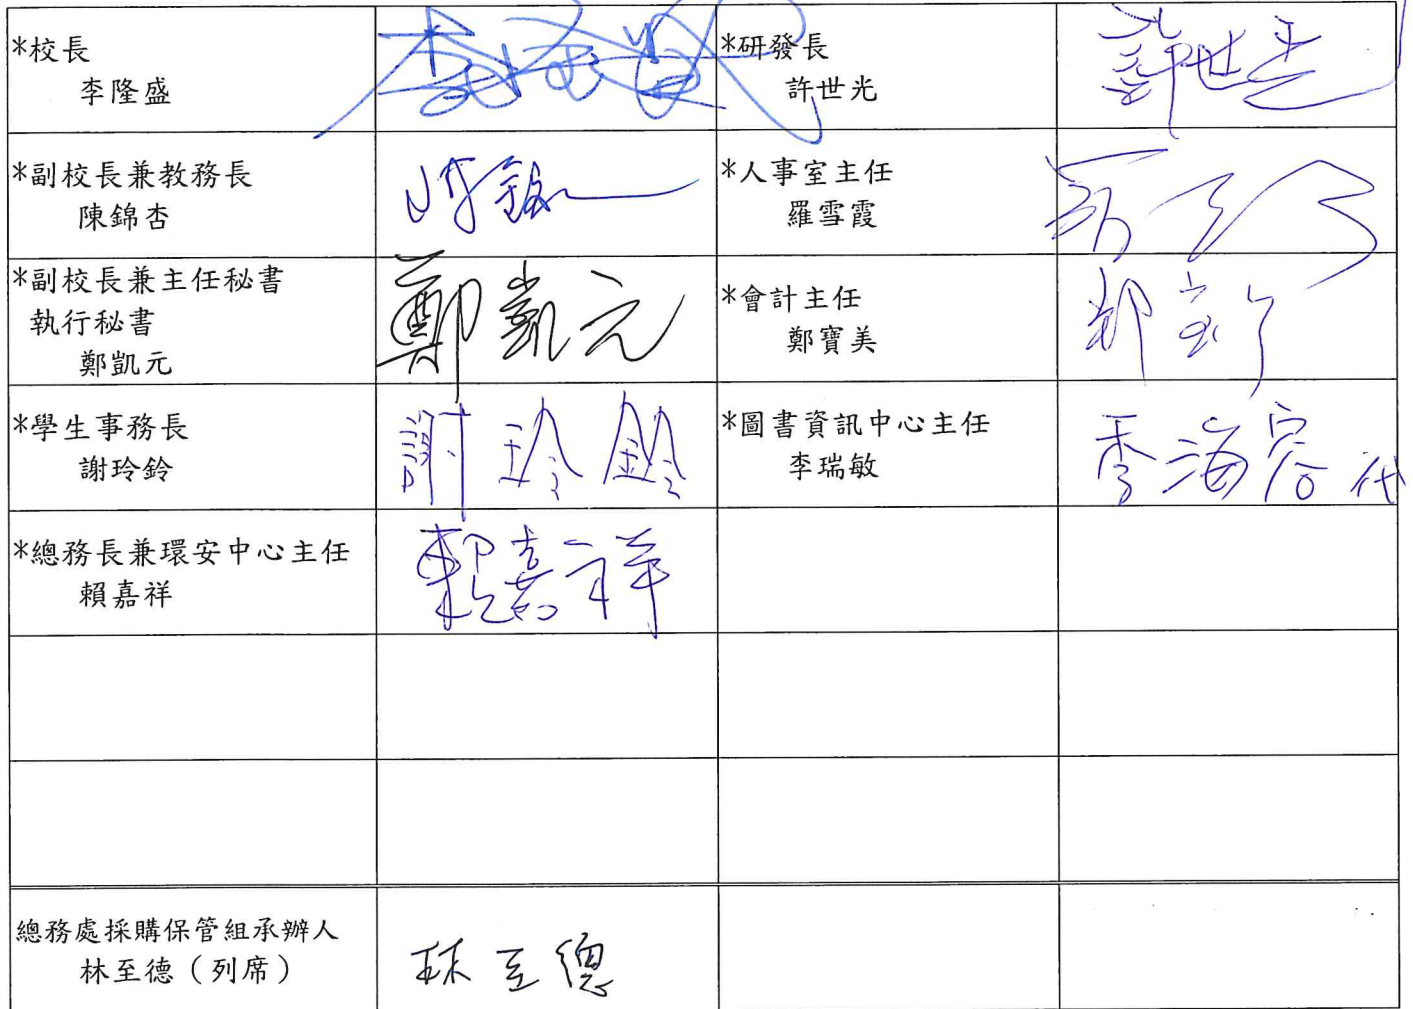 *校長
李隆盛
*研發長
許世光
許世光
*副校長兼教務長
陳錦杏
*人事室主任
羅雪霞
*副校長兼主任秘書
執行秘書
鄭凱元
鄭凱元
*會計主任
鄭寶美
*學生事務長
謝玲鈴
謝玲鈴
*圖書資訊中心主任
李瑞敏
李海容代
*總務長兼環安中心主任
賴嘉祥
賴嘉祥
總務處採購保管組承辦人
林至德（列席）
林至德